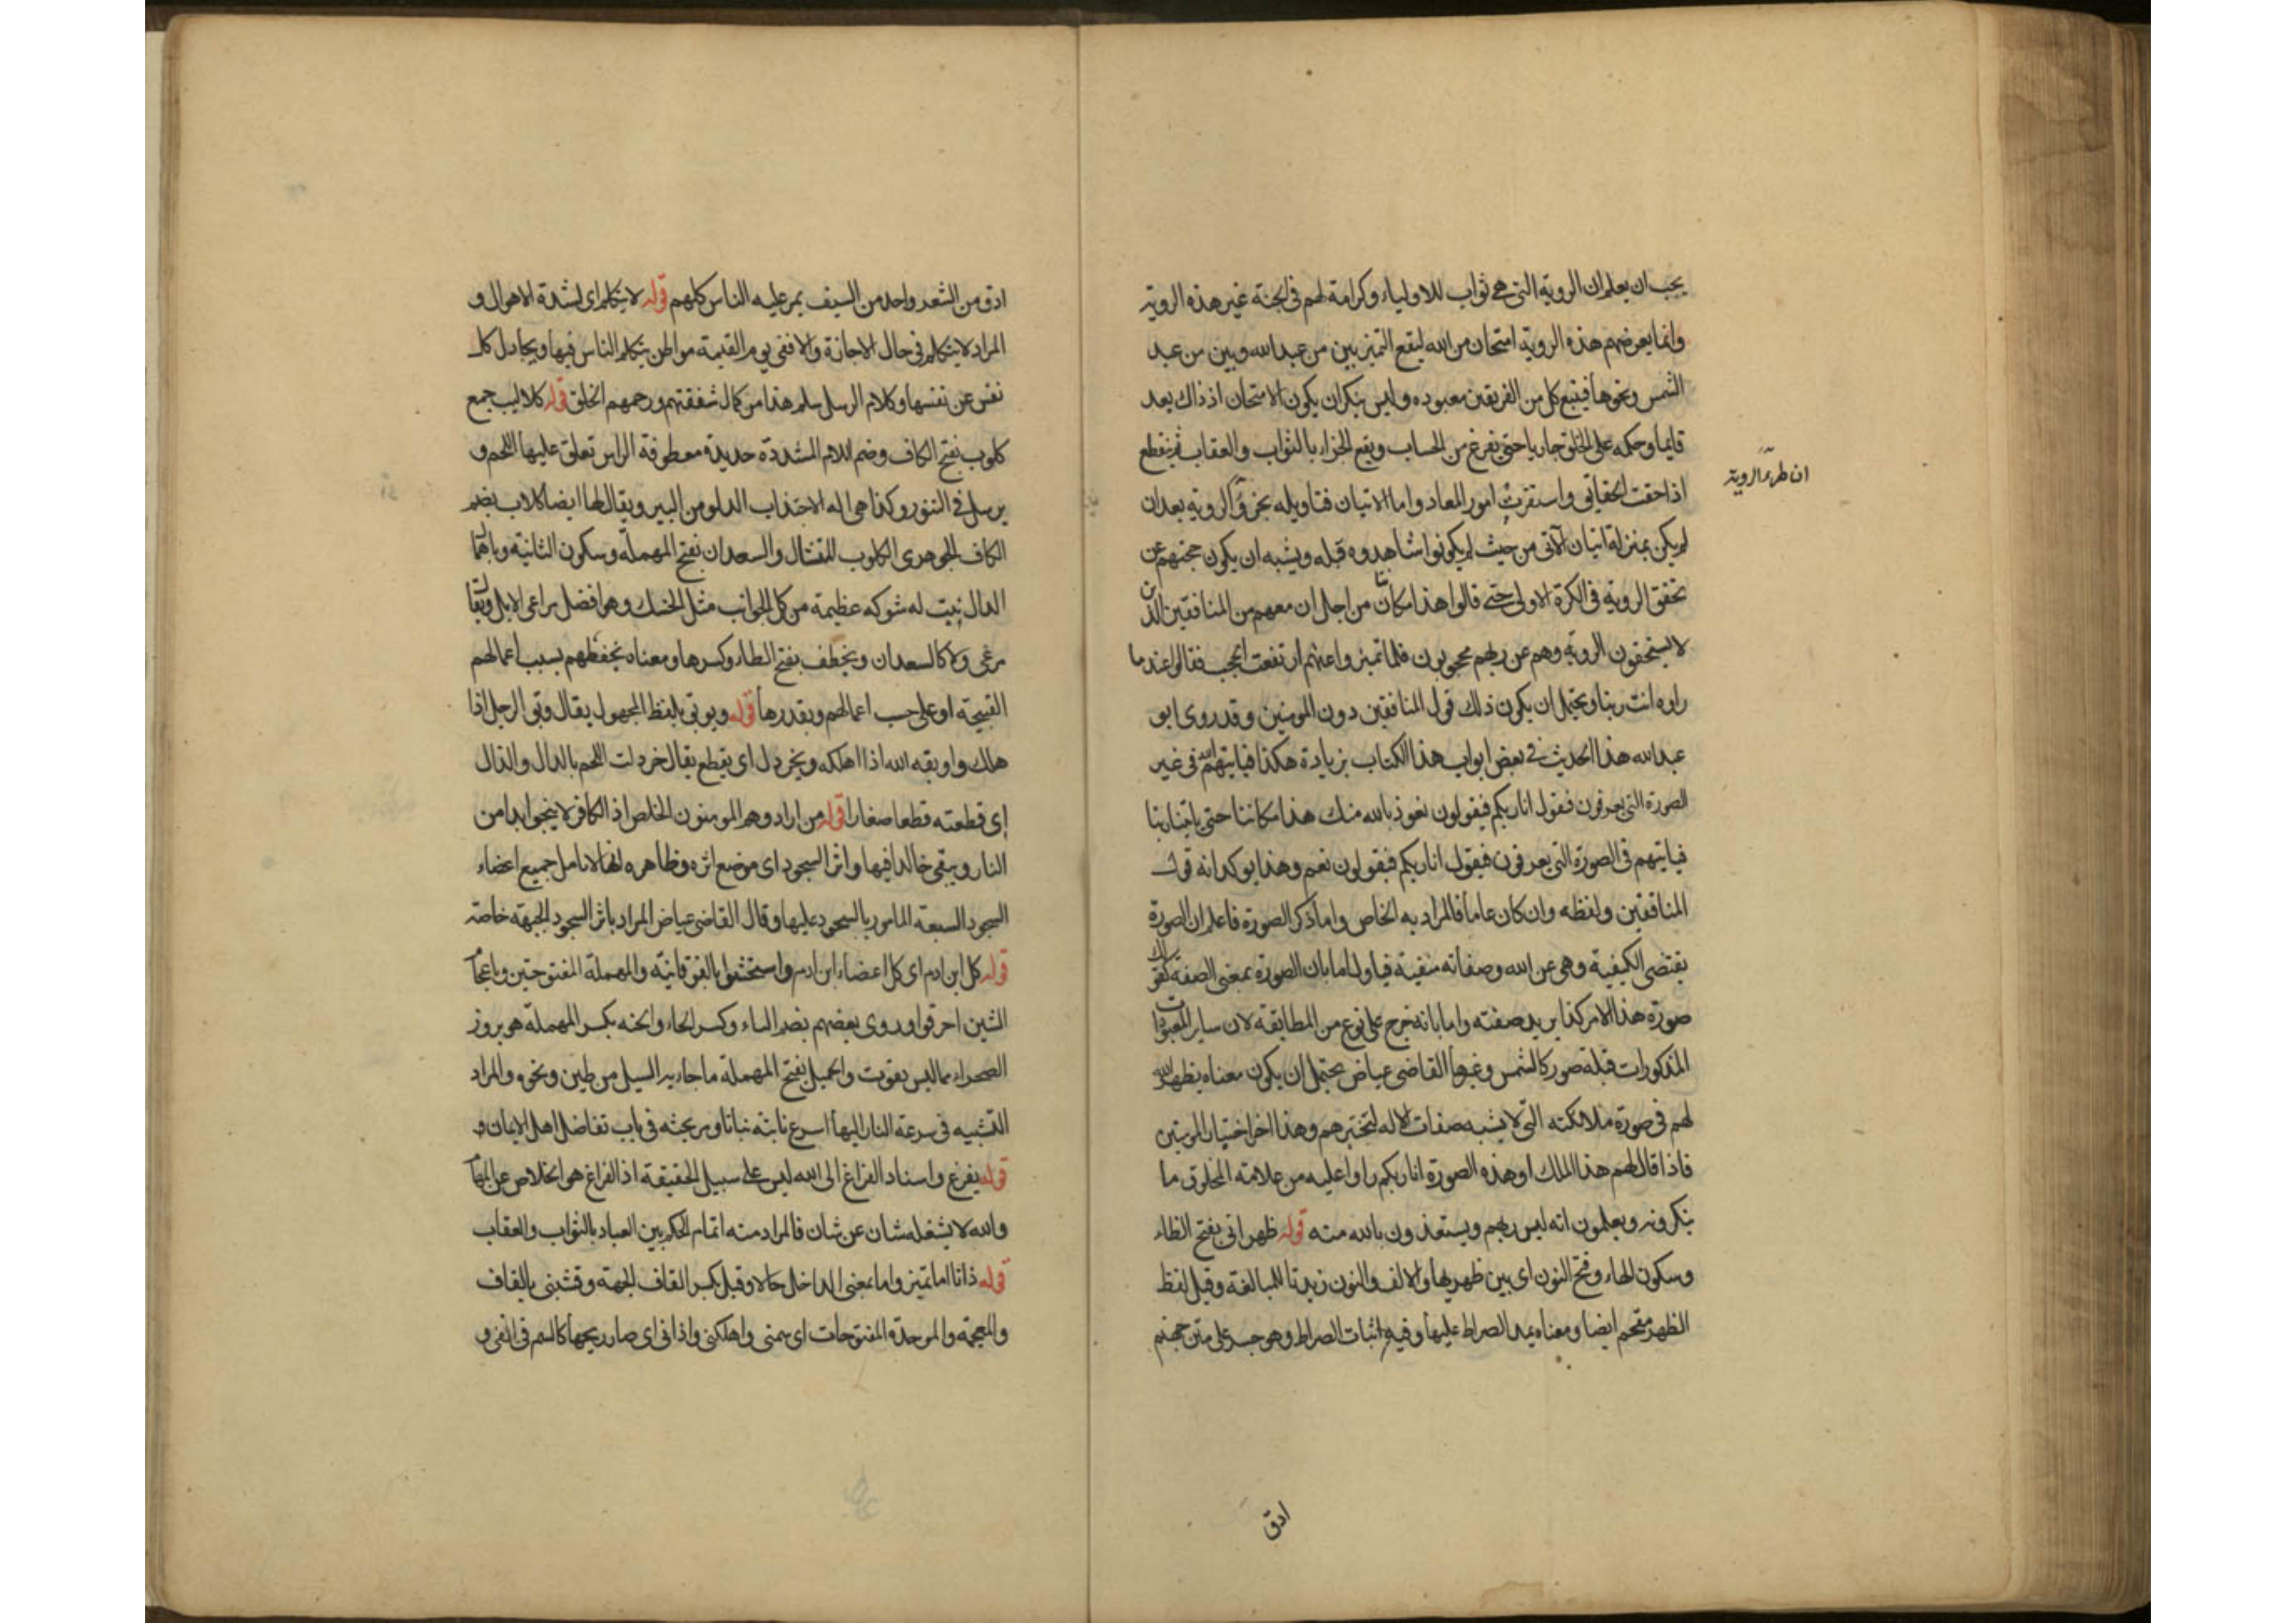 يجب ان يعلم ان الروية التي هي ثواب للاولياء وكرامة لهم في الجنة غير هذه الروية
وانما يعرضهم هذه الروية امتحان من الله ليقع التميز بين من عبد الله وبين من عبد
الشمس ونحوها فيتبع كل من الفريقين معبوده وليس ينكر ان يكون الامتحان اذ ذاك بعد
قايما وحكمه على الخلق جاريا حتى يفرغ من الحساب ويقع الجزاء بالثواب والعقاب ثم ينقطع
ان طرء الروية
اذا حقت الحقايق واستقرت امور المعاد واما الاتيان فتاويله الروية بعد ان
لم يكن بمنزلة اتيان الآتي من حيث لم يكونوا شاهدوه قبله ويشبه ان يكون حجبهم عن
تحقق الروية في الكرة الاولى حتى قالوا هذا مكاننا من اجل ان معهم من المنافقين الذين
لا يستحقون الروية وهم عن ربهم محجوبون فلما تميزوا عنهم ارتفعت الحجب فقالوا عند ما
راوه انت ربنا ويحتمل ان يكون ذلك قول المنافقين دون المومنين وقد روى ابو
عبد الله هذا الحديث في بعض ابواب هذا الكتاب بزيادة هكذا فياتيهم الله في غير
الصورة التي يعرفون فيقول انا ربكم فيقولون نعوذ بالله منك هذا مكاننا حتى ياتينا ربنا
فياتيهم في الصورة التي يعرفون فيقول انا ربكم فيقولون نعم وهذا يوكد انه قول
المنافقين ولفظه وان كان عاما فالمراد به الخاص واما ذكر الصورة فاعلم ان الصورة
يقتضى الكيفية وهي عن الله وصفاته منفية فياول اما بان الصورة بمعنى الصفة كقولك
صورة هذا الامر كذا يريد صفته واما بانه خرج على نوع من المطابقة لان ساير المعبودات
المذكورات قبله صور كالشمس وغيرها القاضي عياض يحتمل ان يكون معناه يظهر الله
لهم في صورة ملائكته التي لا يشبه صفات الاله لتختبرهم وهذا اخر اختبار المومنين
فاذا قال لهم هذا الملك او هذه الصورة انا ربكم راوا عليه من علامة المخلوق ما
ينكرونه ويعلمون انه ليس ربهم ويستعذون بالله منه قوله ظهراني بفتح الظاء
وسكون الهاء وفتح النون اي بين ظهريها والالف والنون زيدتا للمبالغة وقيل لفظ
الظهر مقحم ايضا ومعناه يمد الصراط عليها وفيه اثبات الصراط وهو جسر على متن جهنم
ادق
ادق من الشعر واحد من السيف يمر عليه الناس كلهم قوله لا يتكلم اي لشدة الاهوال و
المراد لا يتكلم في حال الاجازة والا ففي يوم القيمة مواطن يتكلم الناس فيها ويجادل كل
نفس عن نفسها وكلام الرسل سلم هذا من كمال شفقتهم ورحمهم الخلق قوله كلاليب جمع
كلوب بفتح الكاف وضم اللام المشددة حديدة معطوفة الراس تعلق عليها اللحم و
يرسل في التنور وكذا هي اله لاجتذاب الدلو من البير ويقال لها ايضا كلاب بضم
الكاف الجوهري الكلوب المنشال والسعدان بفتح المهملة وسكون الثانية
الدال نبت له شوكه عظيمة من كل الجوانب مثل الحسك وهو افضل مراعى الابل ويقال
مرعى ولا كالسعدان ويخطف بفتح الطاء وكسرها ومعناه يخطفهم بسبب اعمالهم
القبيحة او على حسب اعمالهم وبقدرها قوله ويوبق بلفظ المجهول يقال وبق الرجل اذا
هلك واوبقه الله اذا اهلكه ويخردل اي يقطع يقال خردلت اللحم بالدال والذال
اي قطعته قطعا صغارا قوله من اراد وهم المومنون الخلص اذ الكافر لا ينجوا ابدا من
النار ويبقى خالدا فيها واثر السجود اي موضع اثره وظاهره لجميع اعضاء
السجود السبعة المامور بالسجود عليها وقال القاضي عياض المراد باثر السجود الجبهة خاصة
قوله كل ابن ادم اي كل اعضاء ابن ادم وامتحشوا بالفوقانية والمهملة المفتوحتين واعجام
الشين احرقوا وروى بعضهم بضم التاء وكسر الحاء والحبه بكسر المهملة هو بروز
الصحراء مما ليس بقوت والحميل بفتح المهملة ما جاء به السيل من طين ونحوه والمراد
التشبيه في سرعة النبات نباتا ومر بحثه في باب تفاضل اهل الايمان و
قوله يفرغ واسناد الفراغ الى الله ليس على سبيل الحقيقة اذ الفراغ هو الخلاص عن المهام
والله لا يشغله شان عن شان فالمراد منه اتمام الحكم بين العباد بالثواب والعقاب
قوله اما تميز واما بمعنى الداخل حالا وقبل بكسر القاف الجهة وقشبني بالقاف
والمعجمة والموحدة المفتوحات اي سمني واهلكني واذاني اي صار ريحها كالسم في انفي و